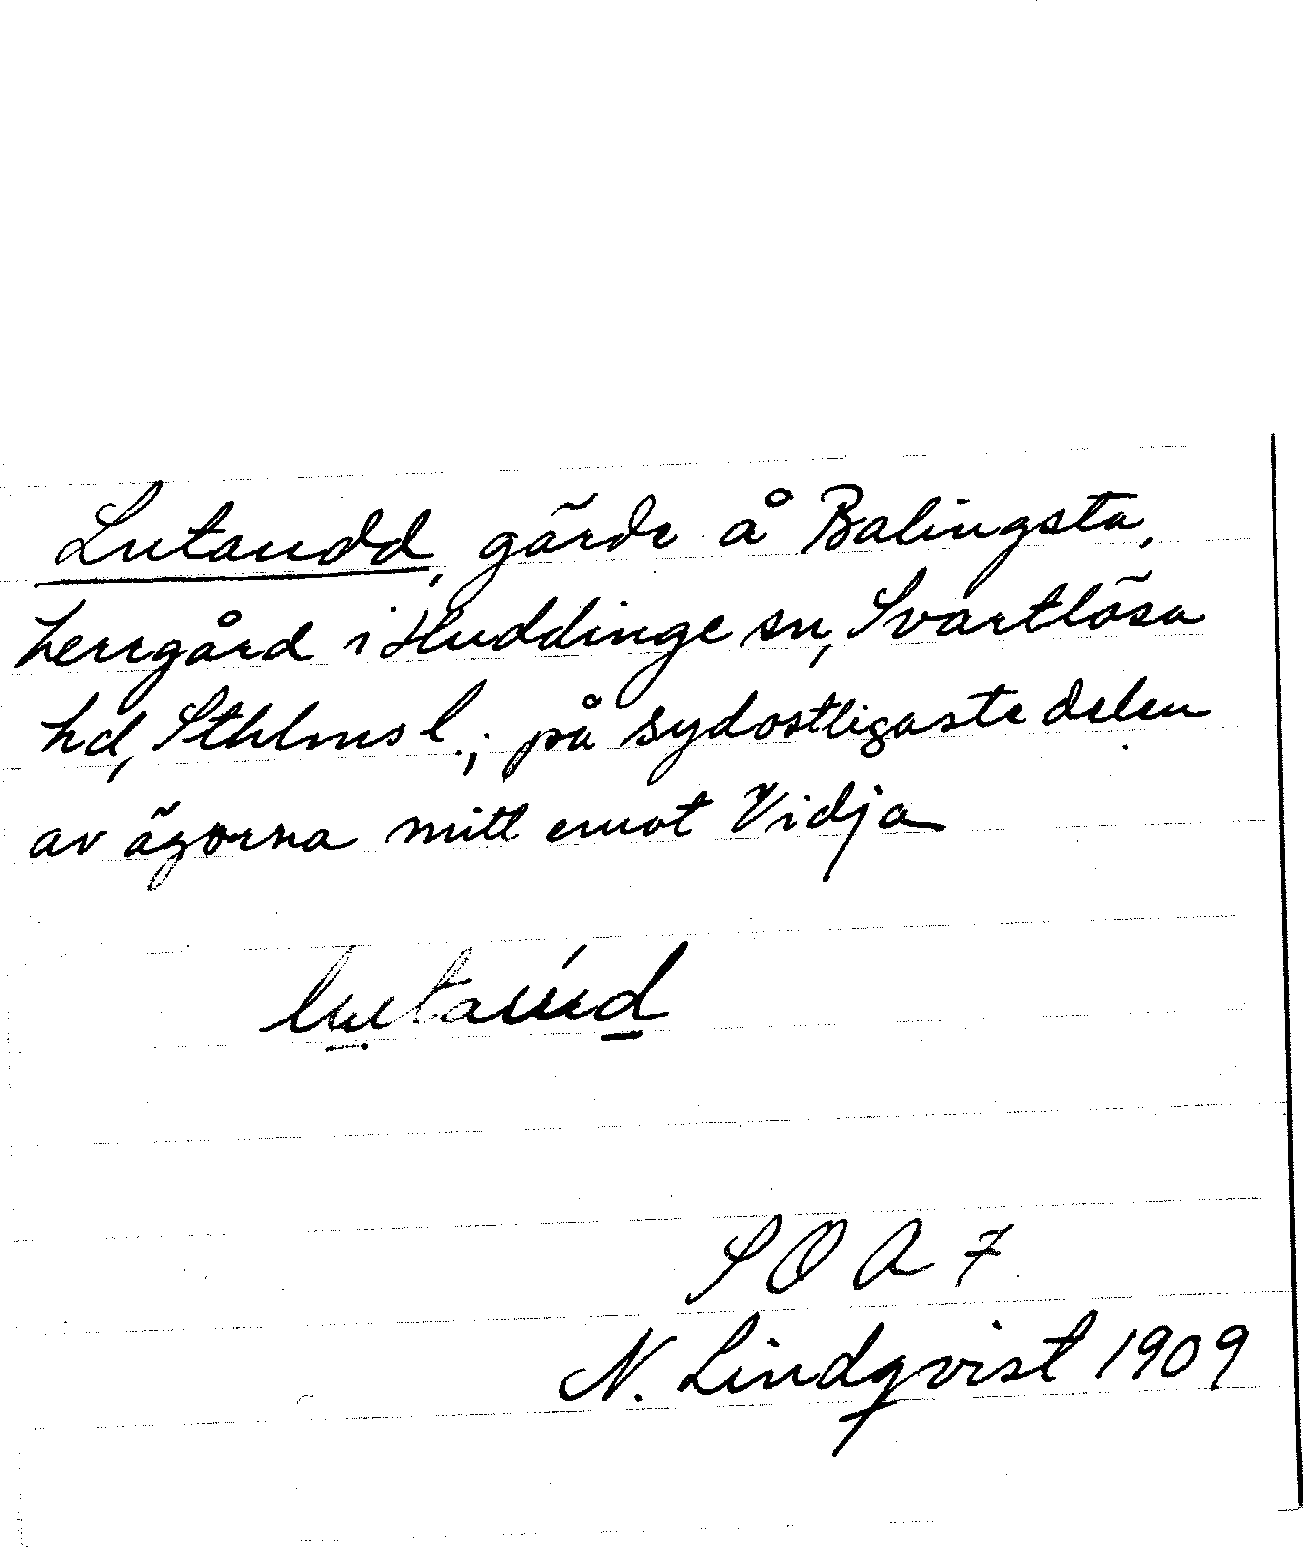 Lutaudd, gärde å Balingsta,
herrgård i Huddinge sn, Svartlösa
hd, Sthlms l.; på sydostligaste delen
av ägorna mitt emot Vidja
SOA 7
N. Lindqvist 1909